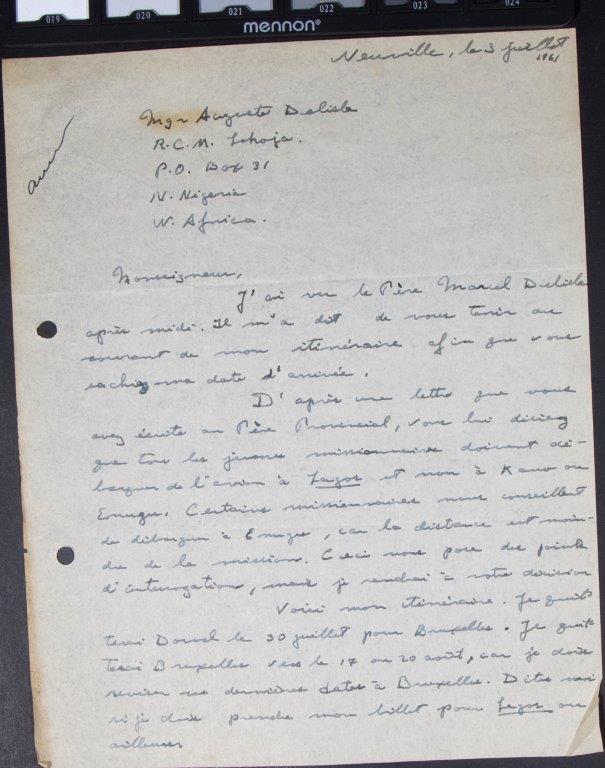 019 020 021 022 023 024
mennon®
Neuville, le 3 juillet
1961
Mgr Auguste Delisle
R.C.M. Lokoja.
P.O. Box 31
N. Nigeria
W. Africa.
Monseigneur,
J'ai vu le Père Marcel Delisle
après midi. Il m'a dit de vous tenir au
courant de mon itinéraire afin que vous
sachiez ma date d'arrivée.
D'après une lettre que vous
avez écrite au Père Provincial, vous lui disiez
que tous les jeunes missionnaires doivent dé-
barquer de l'avion à Lagos et non à Kano ou
Enugu. Certains missionnaires nous conseillent
de débarquer à Enugu, car la distance est moin-
dre de la mission. Ceci nous pose des points
d'interrogation, mais je rendrai à votre décision
Voici mon itinéraire. Je quit-
terai Dorval le 30 juillet pour Bruxelles. Je quit-
terai Bruxelles vers le 17 ou 20 août, car je dois
reviser ces dernières dates à Bruxelles. Dites moi
si je dois prendre mon billet pour Lagos ou
ailleurs